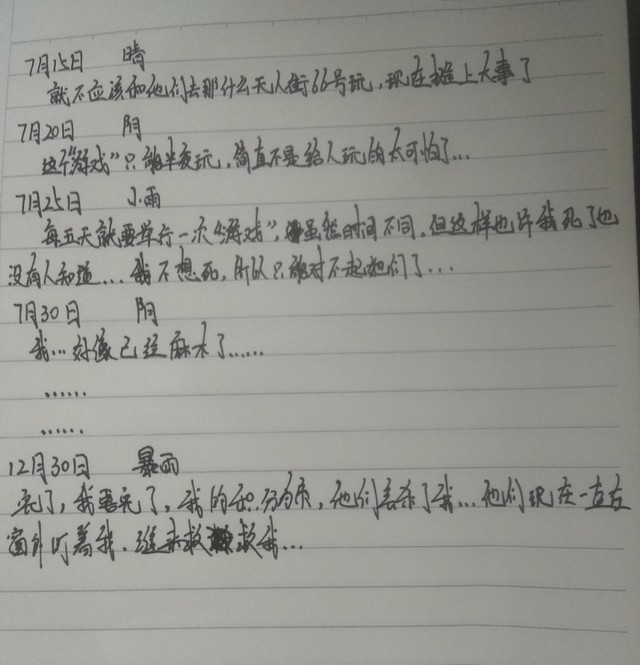 7月15日 晴
就不应该和他们去那什么天人街66号玩，现在摊上大事了
7月20日 阴
这个“游戏”只能半夜玩，简直不是给人玩的太可怕了...
7月25日 小雨
每五天就要举行一次“游戏”，虽然时间不同，但这样也许我死了也
没有人知道....我不想死，所以只能对不起她们了...
7月30日 阴
我...好像已经麻木了......
......
......
12月30日 暴雨
完了，我要完了，我的积分为负，他们要杀了我...他们现在一直在
窗外盯着我，谁来救救我...